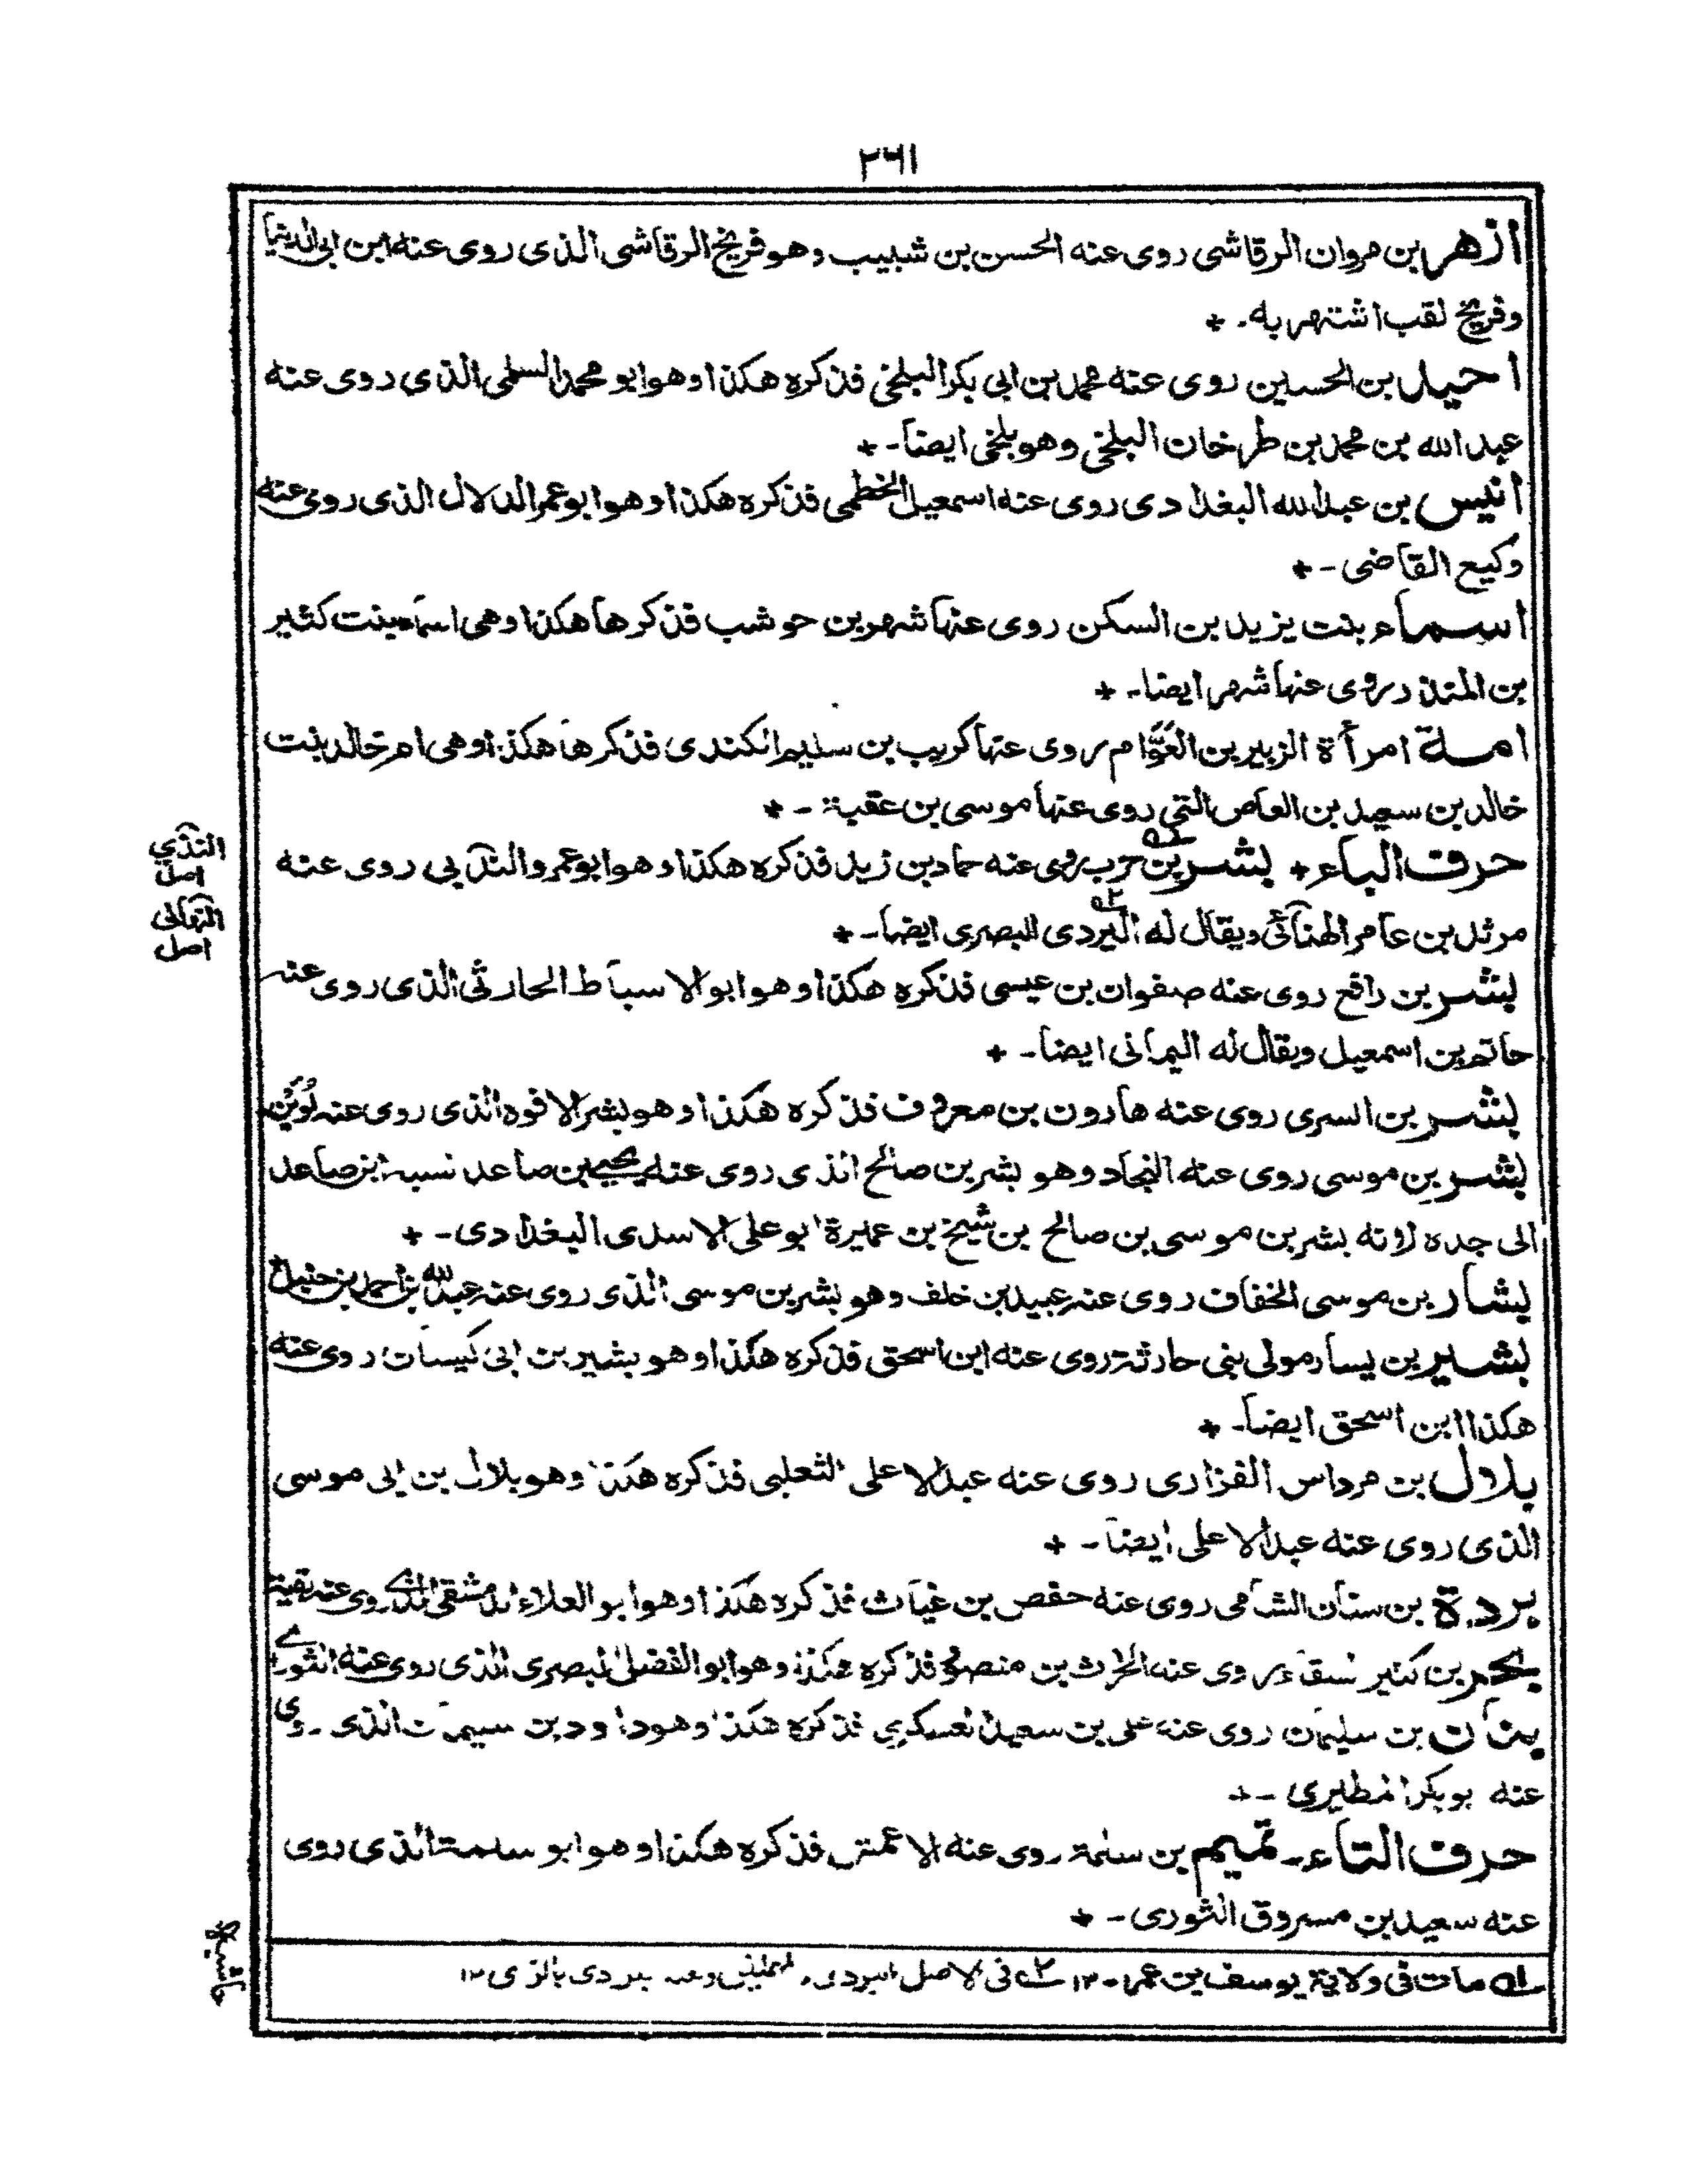 ٢٦١
ازهر بن مروان الرقاشى روى عنه الحسن بن شبيب وهو فريخ الرقاشى الذى روى عنه ابن ابى الدنيا
وفريخ لقب اشتهر به - +
احيد بن الحسين روى عنه محمد بن ابى بكر البلخى فذكره هكذا وهو ابو محمد السلمى الذى روى عنه
عبد الله بن محمد بن طرخان البلخى وهو بلخى ايضا - +
انيس بن عبد الله البغدادى روى عنه اسمعيل الخطمى فذكره هكذا وهو ابو عمر الدلال الذى روى عنه
وكيع القاضى - +
اسماء بنت يزيد بن السكن روى عنها شهر بن حوشب فذكرها هكذا وهى اسماء بنت كثير
بن المنذر روى عنها شهر ايضا - +
امة امرأة الزبير بن العوّام روى عنها كريب بن سليم الكندى فذكرها هكذا وهى ام خالد بنت
خالد بن سعيد بن العاص التى روى عنها موسى بن عقبة - +
حرف الباء + بشر بن حرب روى عنه حماد بن زيد فذكره هكذا وهو ابو عمرو الندبى روى عنه
مرثد بن عامر الهنائى ويقال له البردى البصرى ايضا - +
بشر بن رافع روى عنه صفوان بن عيسى فذكره هكذا وهو ابو الاسباط الحارثى الذى روى عنه
حاتم بن اسمعيل ويقال له اليمانى ايضا - +
بشر بن السرى روى عنه هارون بن معروف فذكره هكذا وهو بشر الافوه الذى روى عنه لُوَيْن
بشر بن موسى روى عنه النجاد وهو بشر بن صالح الذى روى عنه يحيى بن صاعد نسبه ابن صاعد
الى جده لانه بشر بن موسى بن صالح بن شيخ بن عميرة ابو على الاسدى البغدادى - +
بشار بن موسى الخفاف روى عنه عبيد بن خلف وهو بشر بن موسى الذى روى عنه عبد الله بن احمد بن حنبل
بشير بن يسار مولى بنى حارثة روى عنه ابن اسحق فذكره هكذا وهو بشير بن ابى كيسان روى عنه
هكذا ابن اسحق ايضا - +
بلال بن مرداس الفزارى روى عنه عبد الاعلى الثعلبى فذكره هكذا وهو بلال بن ابى موسى
الذى روى عنه عبد الاعلى ايضا - +
بردة بن سنان الشامى روى عنه حفص بن غياث فذكره هكذا وهو ابو العلاء الدمشقى الذى روى عنه بقية
بحر بن كنيز السقاء روى عنه الحرث بن منصور فذكره هكذا وهو ابو الفضل البصرى الذى روى عنه الثورى
بنان بن سليمان روى عنه على بن سعيد العسكرى فذكره هكذا وهو داود بن سليمان الذى روى
عنه ابو بكر المطيرى - +
حرف التاء - تميم بن سلمة روى عنه الاعمش فذكره هكذا وهو ابو سلمة الذى روى
عنه سعيد بن مسروق الثورى - +
الندبي
اصل
اصل
حاشيه
له مات فى ولاية يوسف بن عمر ١٣٠ ٢ فى الاصل البردى